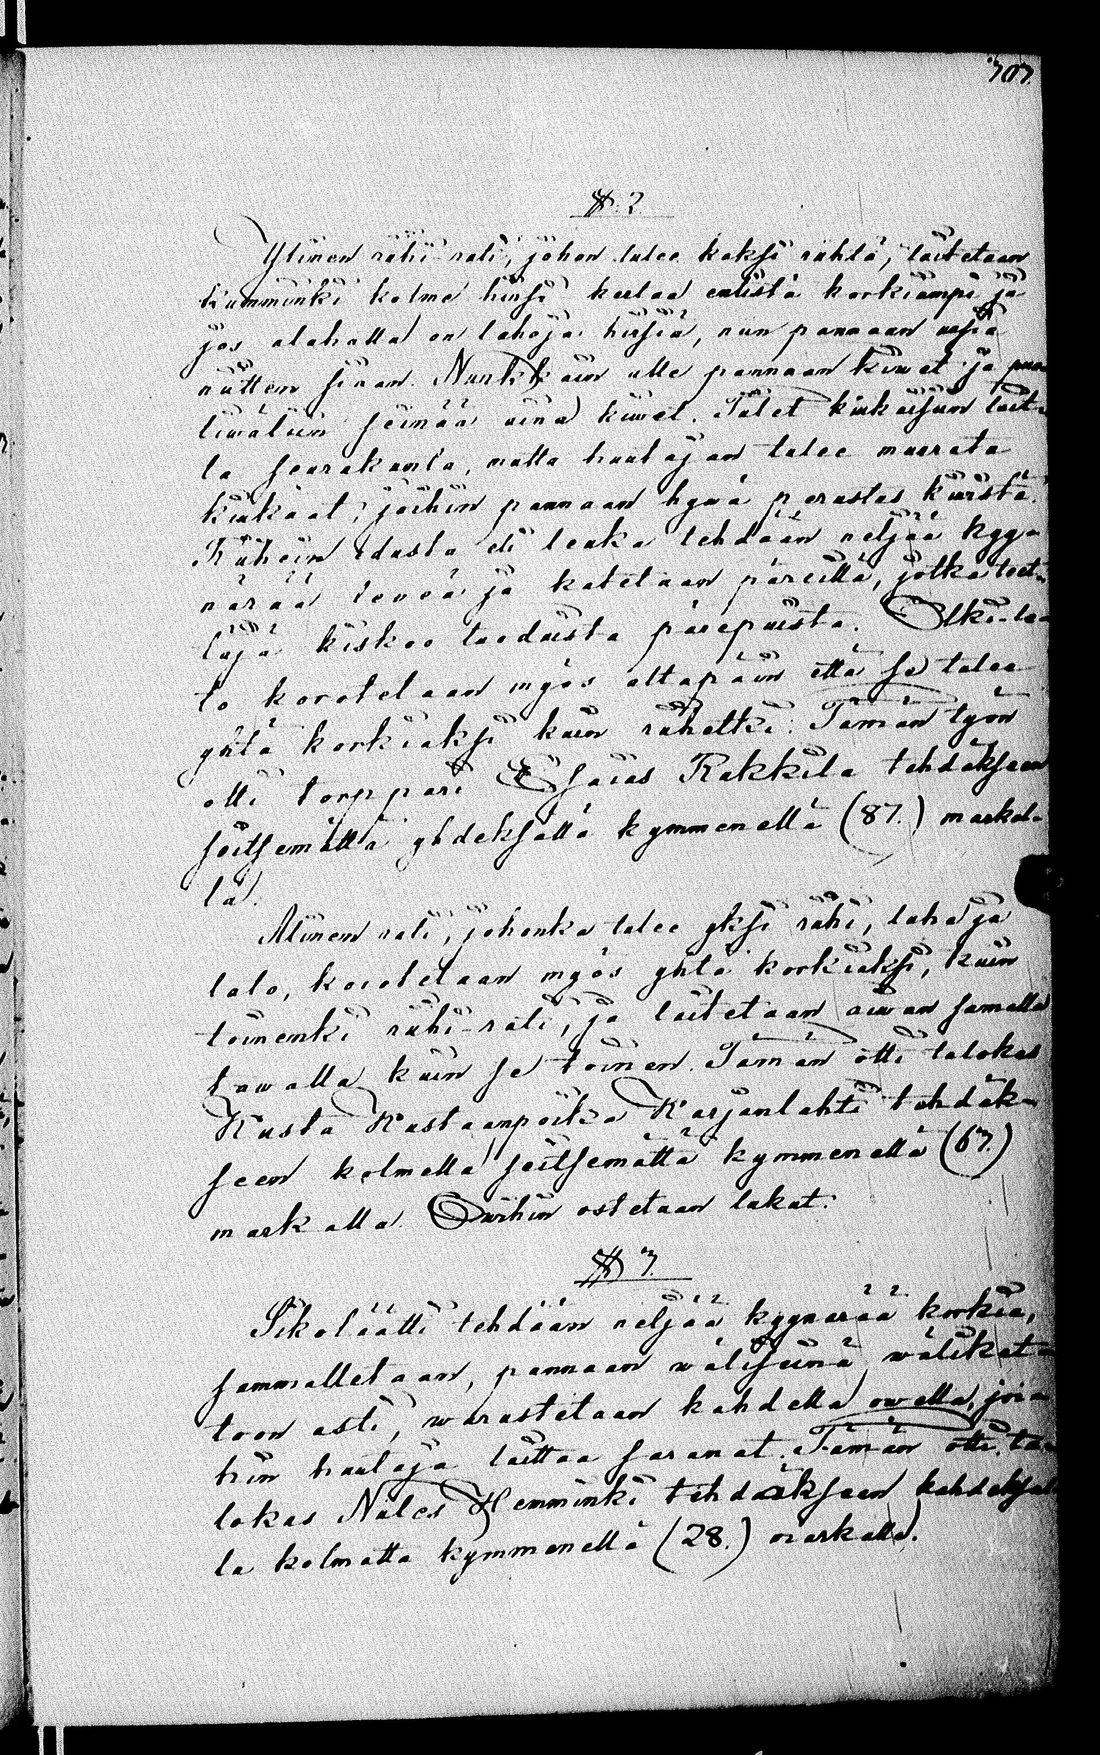 707.
§. 2.
Ylinen riihi-rati, johon tulee kaksi riihtä, laitetaan
kumminki kolme hirsi kertaa entistä korkiampi ja
jos alahalla on lahoja hirsiä, niin pannaan uusia
niitten siaan. Nurkkain alle pannaan kiwet ja
liwäliin seinää aina kiwet. Tulet kiukaisiin lait-
ta seurakunta, mutta huutajan tulee muurata
kiukaat, joihin pannaan hywä perustus kiwistä.
Riihein edusta eli leuka tehdään neljää kyy-
närää leveä ja katetaan päreillä, jotka teet-
täjä kiskoo tuoduista pärepuista. Olki-la-
to korotetaan myös altapäin että se tulee
yhtä korkiaksi kuin riihetki. Tämän työn
otti torppari Esaias Rakkila tehdäksen
seitsemällä yhdeksättä kymmenellä (87.) markal-
la.
Alinen rati, johonka tulee yksi riihi, luha ja
lato, korotetaan myös yhtä korkiaksi, kuin
toinenki riihi-rati, ja laitetaan aiwan samalla
tawalla kuin se toinen. Tämän otti talokas
Kusta Kustaanpoika Karjanlahti tehdäk-
seen kolmella seitsemättä kymmenellä (67.)
markalla. Owihin ostetaan lukat.
§ 3.
Sikolätti tehdään neljää kyynärää korkia,
sammalletaan, pannaan wäliseinä wälikat-
toon asti, warustetaan kahdella owella, joi-
hin huutaja laittaa saranat. Tämän otti ta-
lokas Niiles Hemminki tehdäkseen kahdeksal-
la kolmatta kymmenellä (28.) markalla.